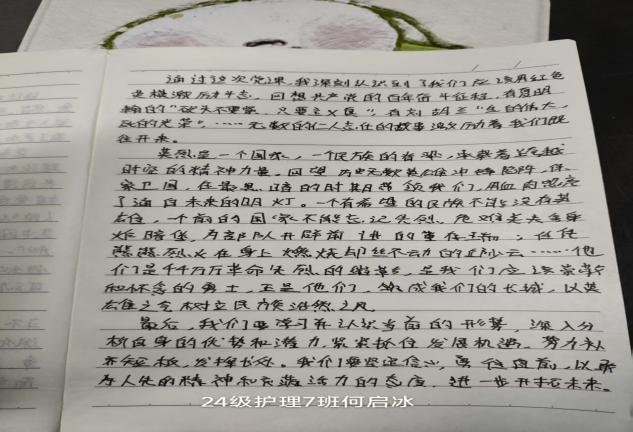 通过这次党课，我深刻认识到了我们应该用红色
史模激历斗志，回想共产党的百年奋斗征程，有夏明
翰的“砍头不要紧，只要主义真”，有刘胡兰“生的伟大，
死的光荣”，……无数的仁人志士的故事激励着我们继
往开来。
英烈是一个国家，一个民族的脊梁，承载着跨越
时空的精神力量，回望历史无数英雄冲锋陷阵，保
家卫国，在最黑暗的时期带领我们，用血肉照亮
了通向未来的明灯。一个有希望的民族不能没有英
雄，一个有前的国家不能忘记先烈。危难关头手举
炸 为部队开辟前进的董存瑞；任凭
熊熊烈火在身上燃烧却丝不动的邱少云……他
们是千千万万革命先烈的缩影，是我们应该崇学
和怀念的勇士，正是他们，筑成我们的长城，以英
雄之名树立民族浩然之风。
最后，我们要学习并认识当前的形势，深入分
析自身的优势和潜力，紧紧抓住发展机遇，努力补
齐短板，发挥长处。我们要坚定信心，勇往直前，以
为人先的精神和充满活力的态度，进一步开拓未来。
24级护理7班何启冰